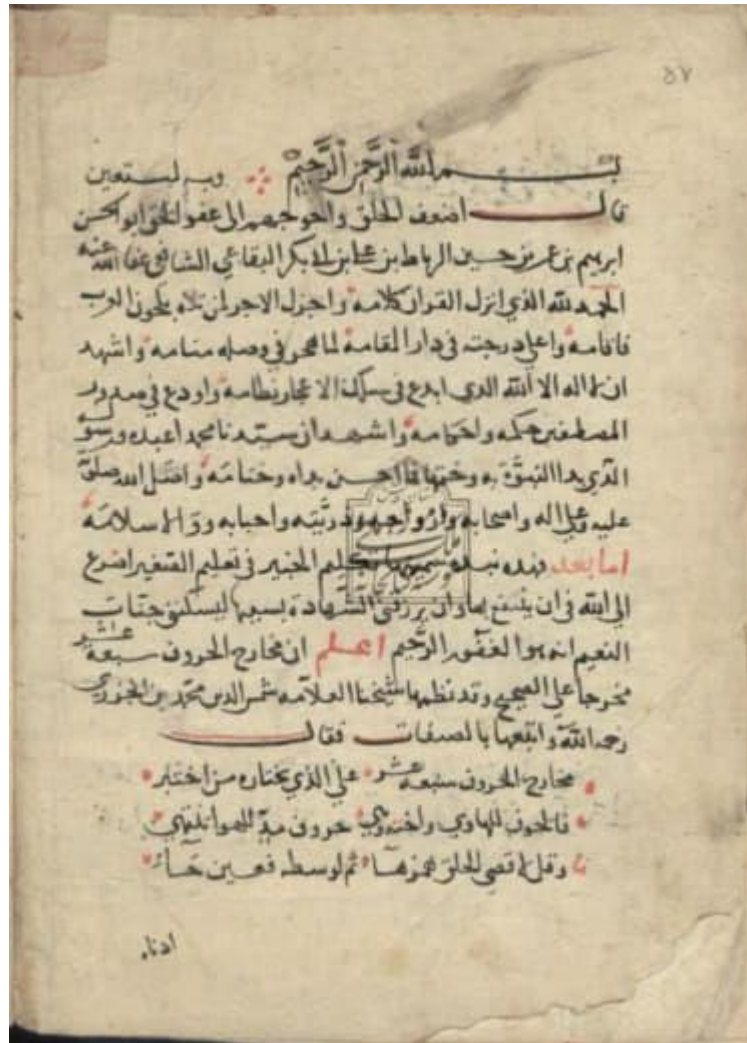 ٥٧
بسم الله الرَّحمٰنِ الرَّحيمِ وبه نستعين
قال اضعف الخلق واحوجهم الى عفو الحق ابو الحسن
ابرهيم بن عمر بن حسين الرباط بن علي بن ابي بكر البقاعي الشافعي عفا الله عنه
الحمد لله الذي انزل القران كلامه واجزل الاجر لمن تلاه بلحون العرب
فاقامه واعلى درجته في دار المقامة لما هجر في وصله منامه واشهد
ان لا اله الا الله الذي ابدع في سلك الاعجاز نظامه واودع في صدور
المصطفين حكمه واحكامه واشهد ان سيدنا محمدا عبده ورسوله
الذي بدا النبوّة به وختمها فااحسن بداه وختامه وافضل الله صلوة
عليه وعلى اله واصحابه وازواجه وذرّيّته واحبابه والاسلامه
اما بعد فهذه نبذه سميتها كلم الخبير في تعليم الصّغير اضرع
الى الله في ان ينفع بها وان يرزقني الشهادة بسببها ليسكنني جنات
النعيم انه هو الغفور الرّحيم اعلم ان مخارج الحروف سبعة عشر
مخرجا على الصحيح وقد نظمها شيخنا العلاّمه شمس الدين محمّد بن الجزري
رحمه الله واتبعها بالصفات فقال
مخارج الحروف سبعة عشر على الذي يختاره من اختبر
فالجوف للهاوي واختيه وهي حروف مدٍّ للهواء تنتهي
وقل لاقصى الحلق همزهآ ثم لوسطه فعين حآء
ادناه